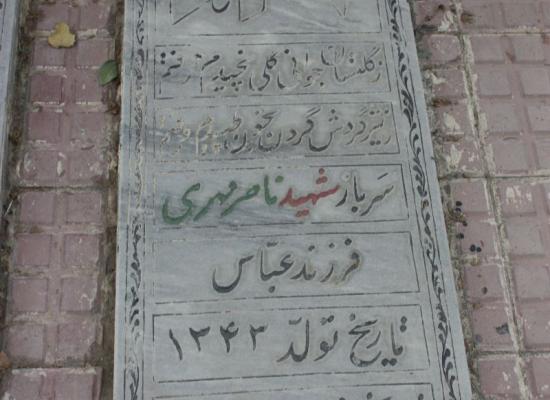 ز گلستان جوانی گلی نچیدم رفتم
ز تیر گردش گردون بخون طپیدم رفتم
سرباز شهید ناصر مهری
فرزند عباس
تاریخ تولد ۱۳۴۳